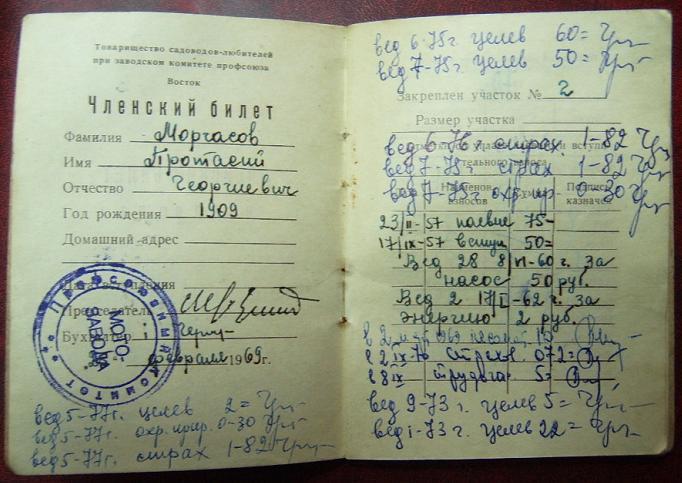 Товарищество садоводов-любителей
при заводском комитете профсоюза
Восток
Членский билет
Фамилия Моргасов
Имя Протасий
Отчество Георгиевич
Год рождения 1909
Домашний адрес
Дата вступления
Председатель
Бухгалтер
февраля 1969 г.
Профсоюзный комитет
МОТО-
ЗАВОДА
вед 5-77г. целев 2=
вед 5-77г. охр. прир. 0-30
вед 5-77г. страх 1-82
вед 6-75г. целев 60=
вед 7-75г. целев 50=
Закреплен участок № 2
Размер участка
вед 6-76г. страх. 1-82
вед 7-75г. страх 1-82
вед 7-75г. охр. пр. 0-30
Наименов. взносов
Подпись казначея
23/II-57 паевые 75-
17/IX-57 вступ 50=
Вед 28 8/VI-60 г. за
насос 50 руб.
Вед 2 17/I-62 г. за
энергию 2 руб.
в 2 1969
в 2 IX-70 страхов. 0 72=
в 8 IX 5=
вед 9-73 г. целев 5=
вед 1-73 г. целев 22=